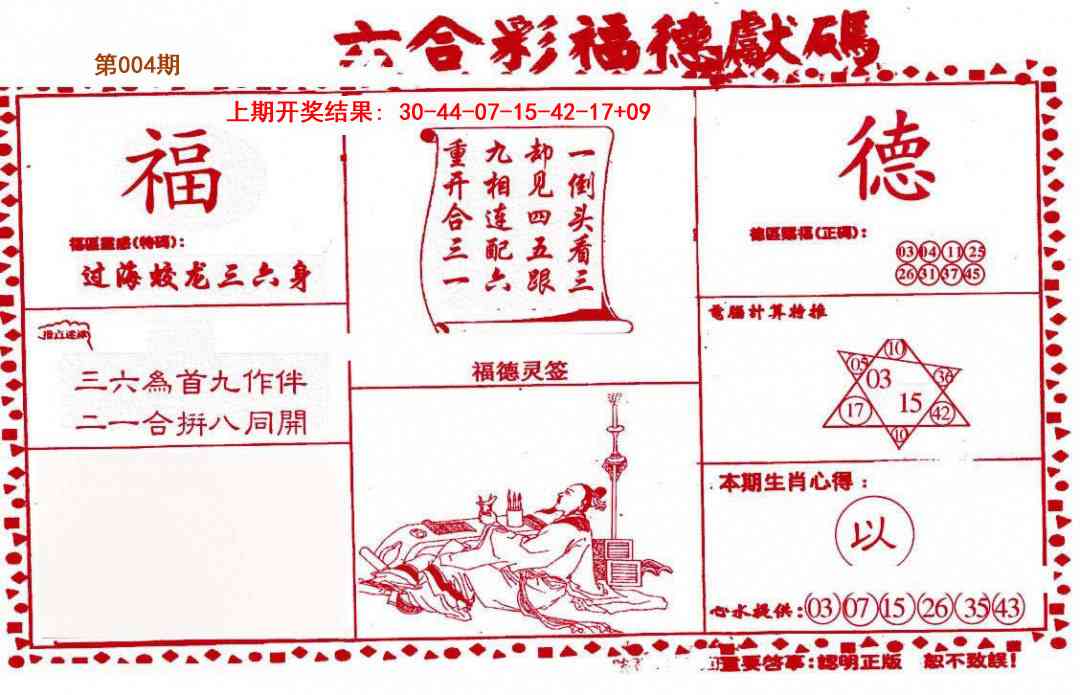 六合彩福德獻碼
第004期
上期开奖结果: 30-44-07-15-42-17+09
福
福區靈感(特碼):
过海蛟龙三六身
三六為首九作伴
二一合拼八同開
一倒头看三
却见四五跟
九相连配六
重开合三一
福德灵签
德
德區賜福(正碼):
03 04 11 25
26 31 37 45
電腦計算特推
10
05 03 36
17 15 42
10
本期生肖心得:
以
心水提供:03 07 15 26 35 43
重要啓事:認明正版 恕不致誤!